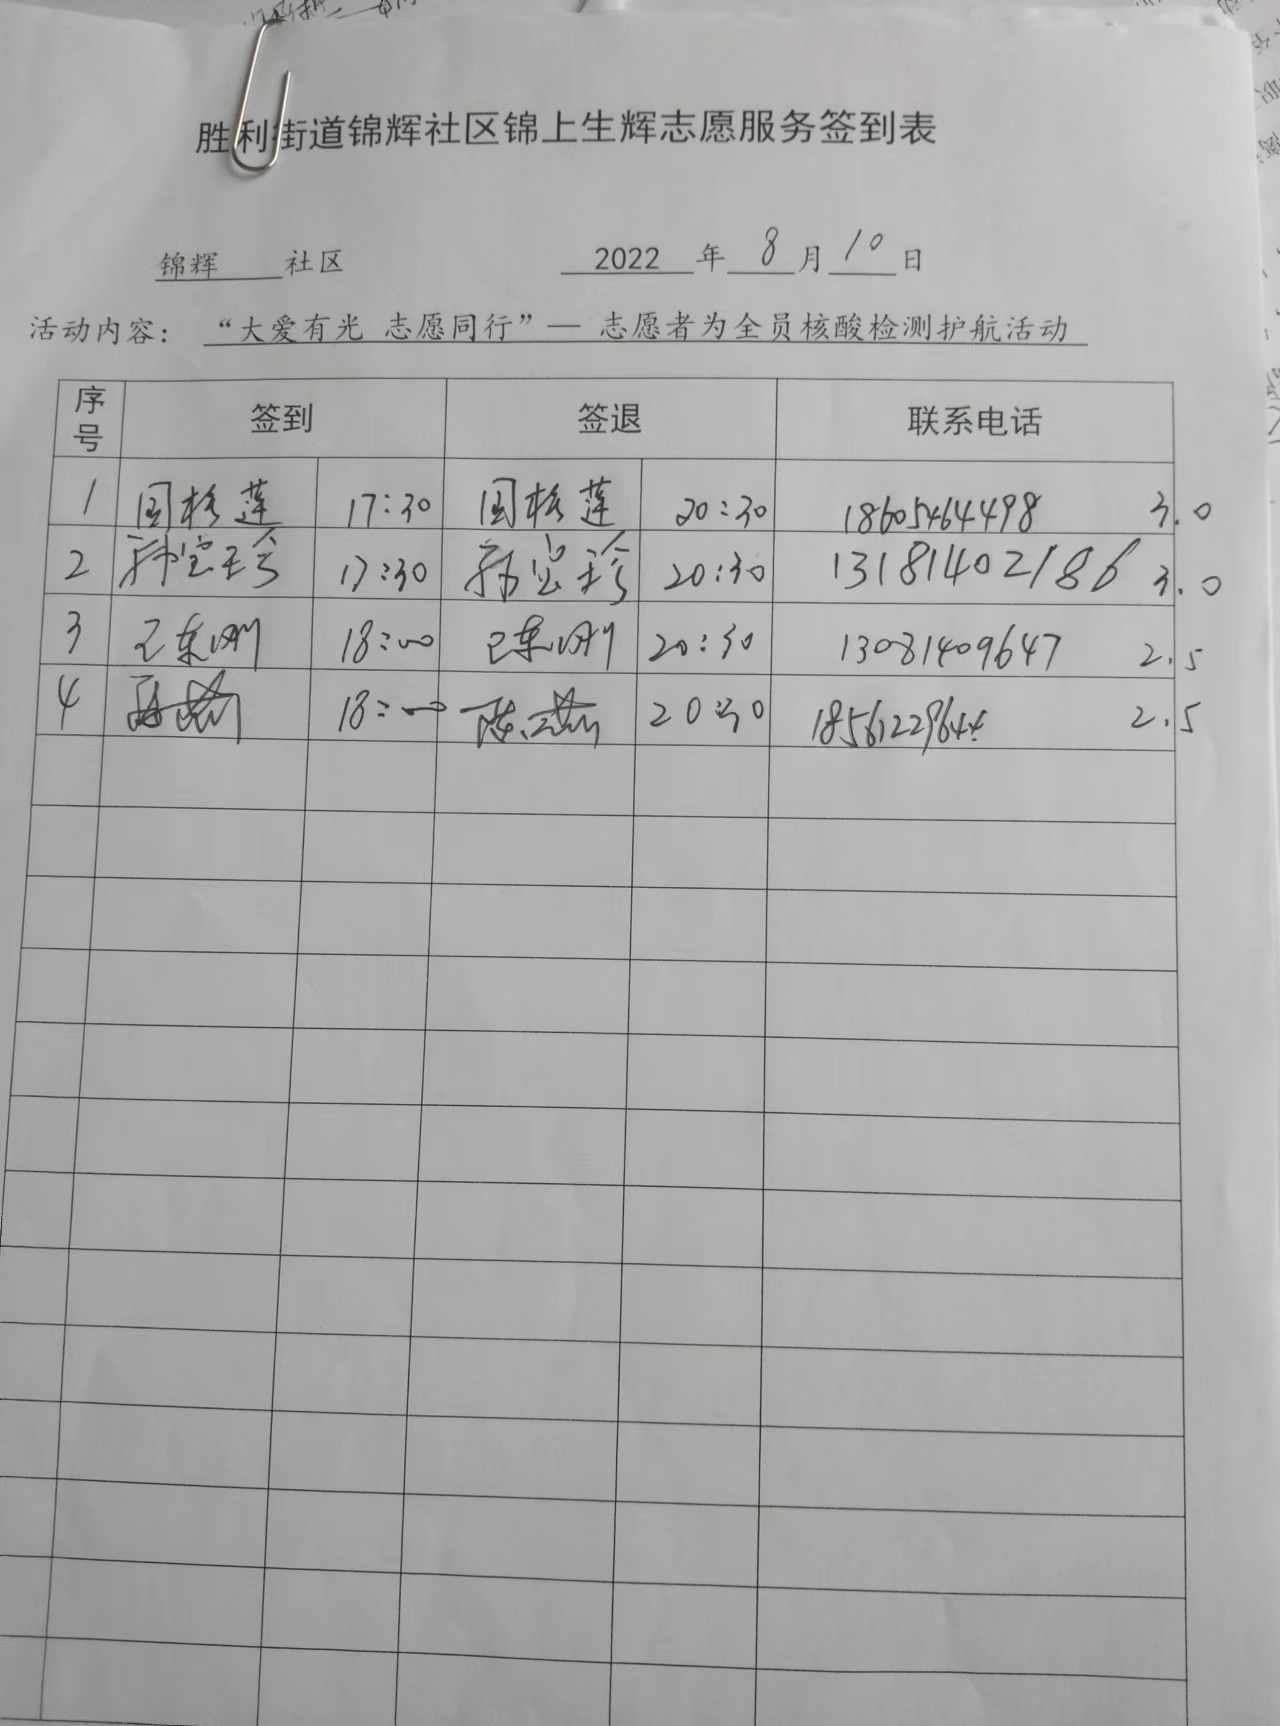 胜利街道锦辉社区锦上生辉志愿服务签到表
锦辉 社区 2022 年 8 月 10 日
活动内容： “大爱有光 志愿同行”— 志愿者为全员核酸检测护航活动
序号 签到 签退 联系电话
1 17:30 20:30 18605464498 3.0
2 韩宝珍 17:30 韩宝珍 20:30 13181402186 3.0
3 18:00 20:30 13081409647 2.5
4 18:00 20:30 2.5